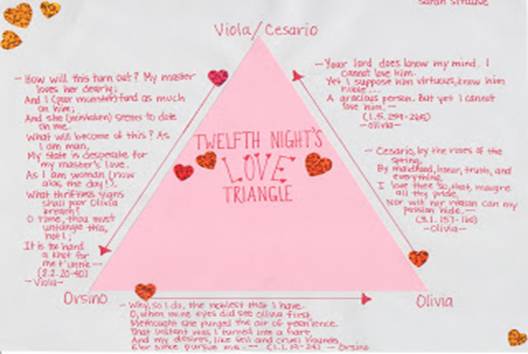 Sarah
Viola/Cesario
—How will this turn out? My master
loves her dearly;
And I (poor monster) fond as much
on him;
And she (mistaken) seems to dote
on me.
What will become of this? As
I am man,
My state is desperate for
my master's love.
As I am woman (now
alas the day!),
What thriftless sighs
shall poor Olivia
breath?
O time, thou must
untangle this,
not I;
It is too hard
a knot for
me t'untie—
(2.2.20-40)
—Viola—
—Your lord does know my mind. I
cannot love him.
Yet I suppose him virtuous, know him
noble...
A gracious person. But yet I cannot
love him.—
—Olivia—
—Cesario, by the roses of the
spring,
By maidhood, honor, truth, and
everything,
I love thee so, that, maugre
all thy pride,
Nor wit nor reason can my
passion hide.—
—Olivia—
TWELFTH NIGHT'S
LOVE
TRIANGLE
Orsino
Olivia
—Why, so I do, the noblest that I have.
O, when mine eyes did see Olivia first,
Methought she purged the air of pestilence.
That instant was I turned into a hart,
And my desires, like fell and cruel hounds,
E'er since pursue me.— —Orsino